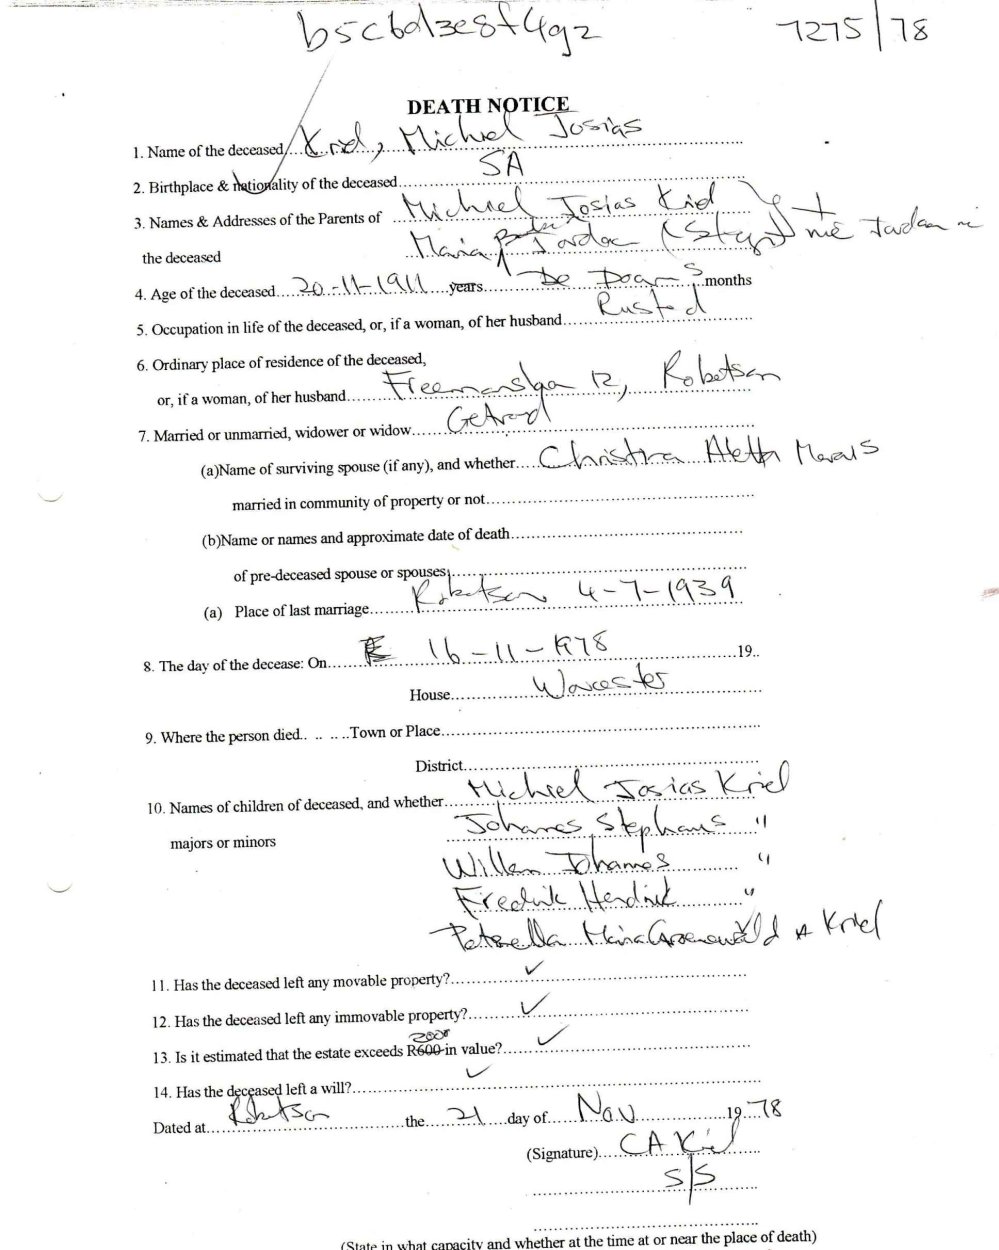 b5cbd3e8f4g2 7275/78
DEATH NOTICE
1. Name of the deceased Kriel, Michiel Josias
2. Birthplace & nationality of the deceased SA
3. Names & Addresses of the Parents of Michiel Josias Kriel
the deceased Maria Jordaan né Jordaan
4. Age of the deceased 20-11-1911 years De Doorns months
5. Occupation in life of the deceased, or, if a woman, of her husband Rusted
6. Ordinary place of residence of the deceased,
or, if a woman, of her husband 12, Robertson
7. Married or unmarried, widower or widow Getroud
(a)Name of surviving spouse (if any), and whether Christina Aletta Marais
married in community of property or not
(b)Name or names and approximate date of death
of pre-deceased spouse or spouses
(a) Place of last marriage Robertson 4-7-1939
8. The day of the decease: On 16-11-1978 19..
House Worcester
9. Where the person died.. .. .. ..Town or Place
District
10. Names of children of deceased, and whether Michiel Josias Kriel
majors or minors Johannes Stephanus "
Willem Johannes "
Fredrik Hendrik "
Petronella Maria Groenewald Kriel
11. Has the deceased left any movable property? ✓
12. Has the deceased left any immovable property? ✓
2000
13. Is it estimated that the estate exceeds R600 in value? ✓
14. Has the deceased left a will? ✓
Dated at Robertson the 21 day of Nov 19 78
(Signature) CA Kriel
S/S
(State in what capacity and whether at the time at or near the place of death)